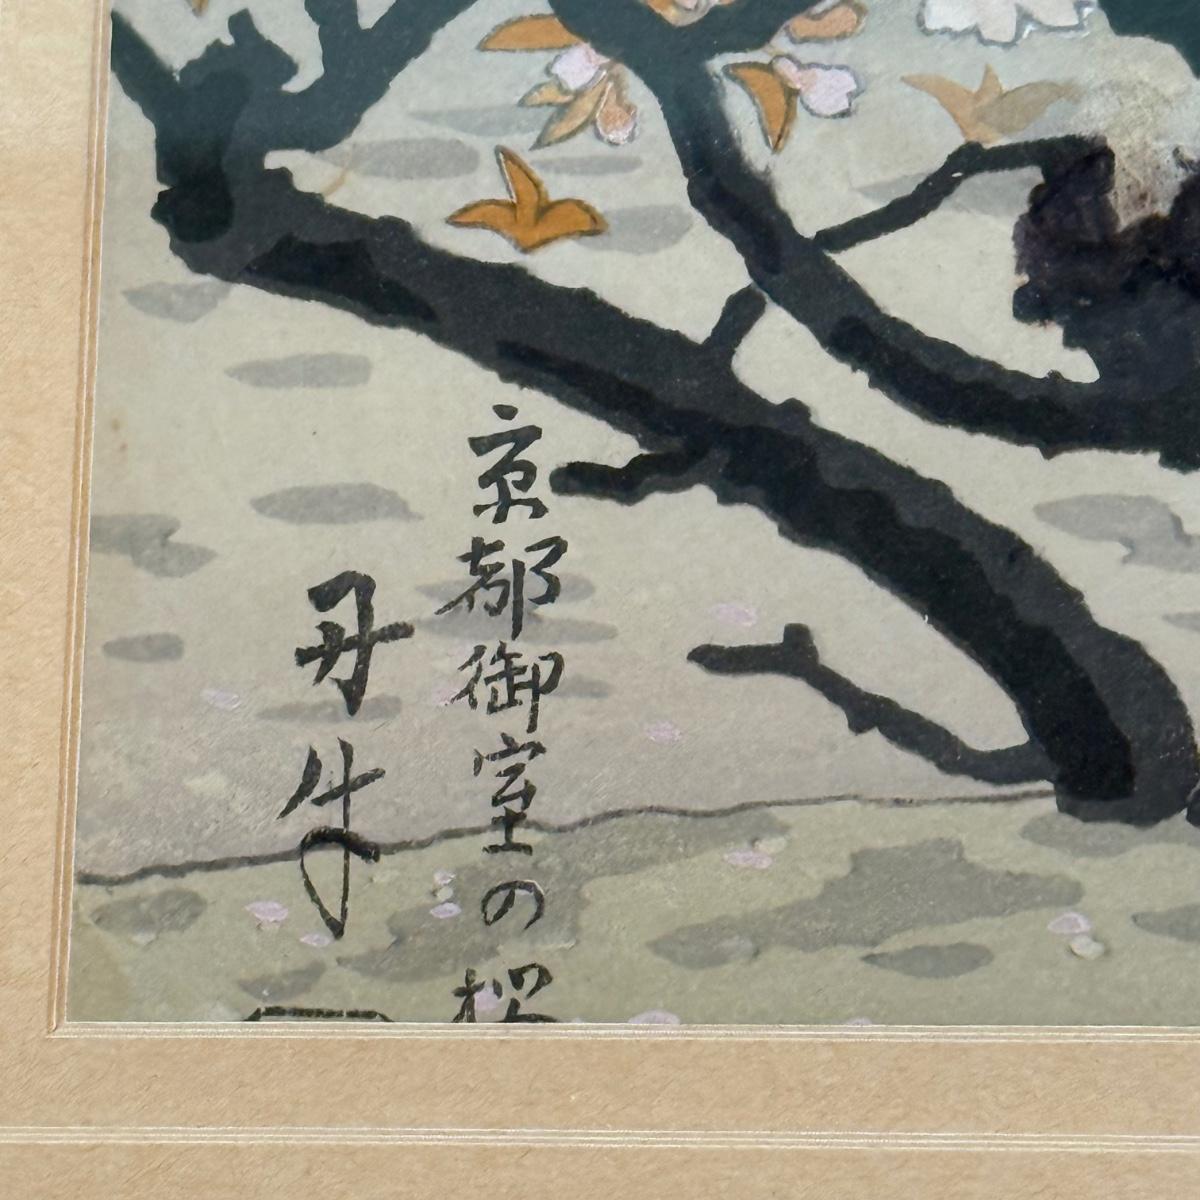 京都御室の桜
丹牛